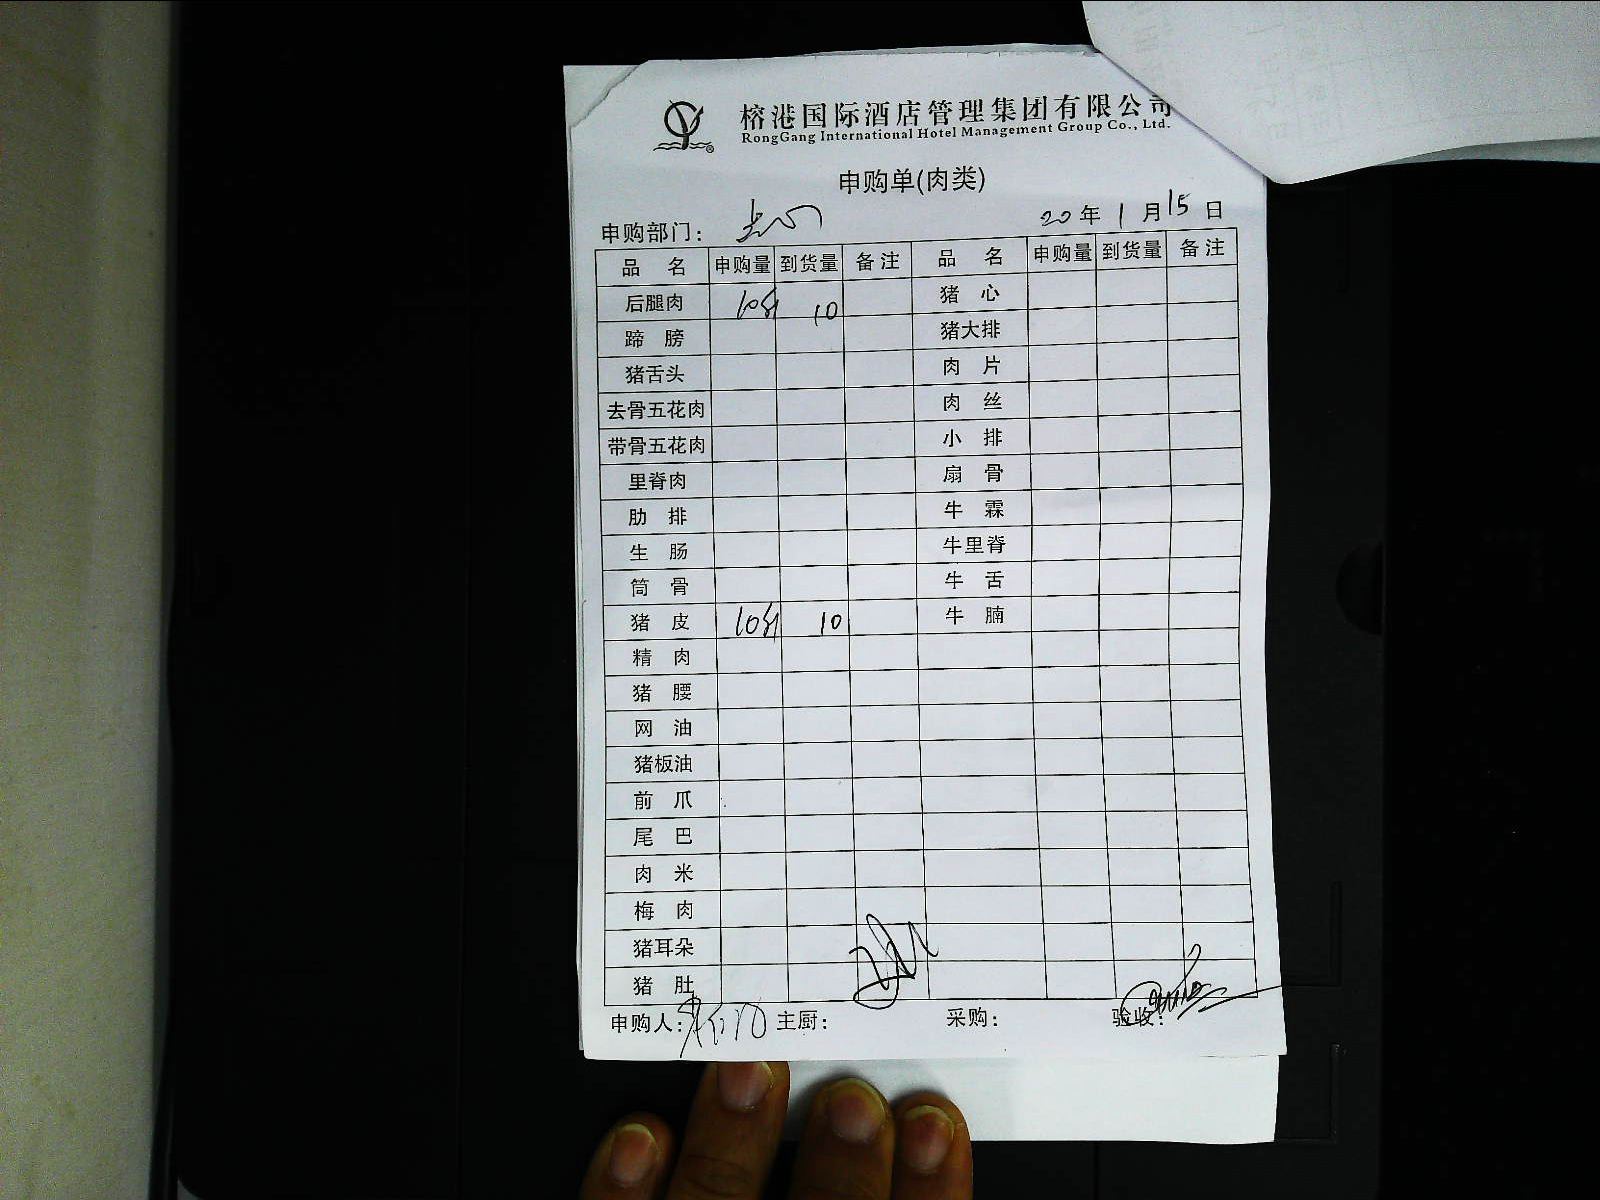 榕港国际酒店管理集团有限公司
RongGang International Hotel Management Group Co., Ltd.
申购单(肉类)
申购部门：
20年 1月15日
品 名 申购量 到货量 备注 品 名 申购量 到货量 备注
后腿肉 10斤 10 猪 心
蹄 膀 猪大排
猪舌头 肉 片
去骨五花肉 肉 丝
带骨五花肉 小 排
里脊肉 扇 骨
肋 排 牛 霖
生 肠 牛里脊
筒 骨 牛 舌
猪 皮 10斤 10 牛 腩
精 肉
猪 腰
网 油
猪板油
前 爪
尾 巴
肉 米
梅 肉
猪耳朵
猪 肚
申购人： 主厨： 采购： 验收：